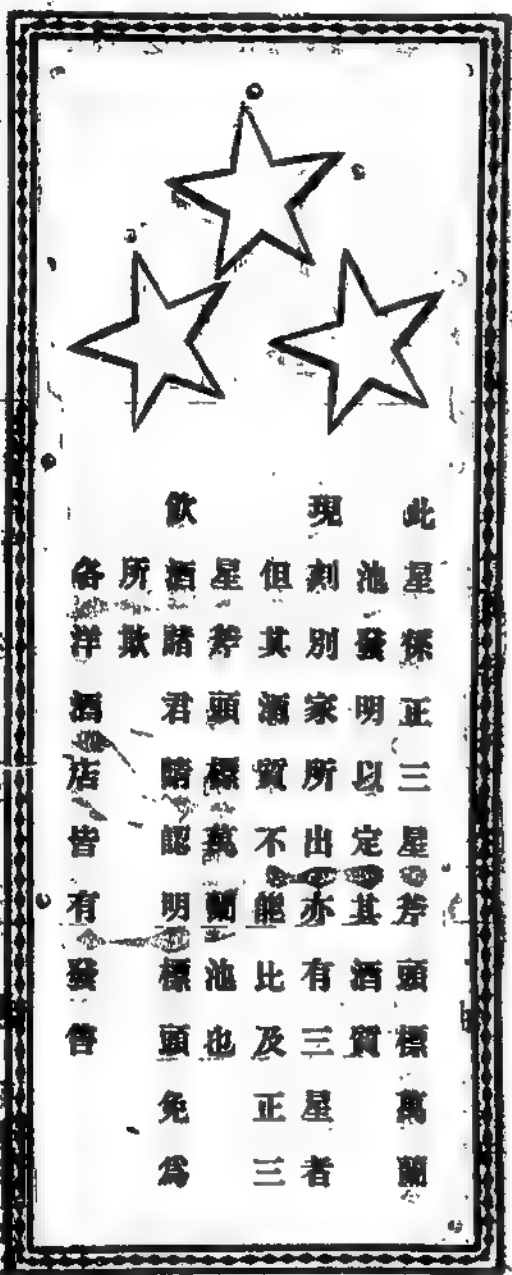 此星係正三星斧頭標萬蘭
池發明以定其酒質
現刻別家所出亦有三星者
但其酒質不能比及正三
星斧頭標萬蘭池也
飲酒諸君請認明標頭免爲
所欺
各洋酒店皆有發售